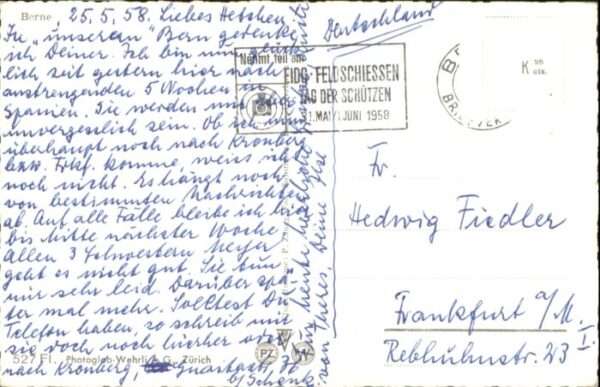 Berne, 25.5.58. Liebes Hetschen,
In "unserem" Bern gedenke
ich Deiner. Ich bin nun glück-
lich seit gestern hier nach
anstrengenden 5 Wochen in
Spanien. Sie werden mir
unvergesslich sein. Ob ich nun
überhaupt noch nach Kronberg
bzw. Frkf. komme, weiss ich
noch nicht. Es hängt noch
von bestimmten Nachrichten
ab. Auf alle Fälle bleibe ich hier
bis Mitte nächster Woche.
Allen 3 Schwestern Meyer
geht es nicht gut. Sie tun
mir sehr leid. Darüber spä-
ter mal mehr. Solltest Du
Telefon haben, so schreib mir
sie doch noch hierher oder
nach Kronberg, 36
b/Schenk.
von Deine Else
527 Fl. Photoglob-Wehrli A.G., Zürich
PZ
Nehmt teil am
EIDG. FELDSCHIESSEN
TAG DER SCHÜTZEN
MAI/1 JUNI 1958
K
Deutschland
Fr.
Hedwig Fiedler
Frankfurt a/M. I.
Rebhuhnstr. 23